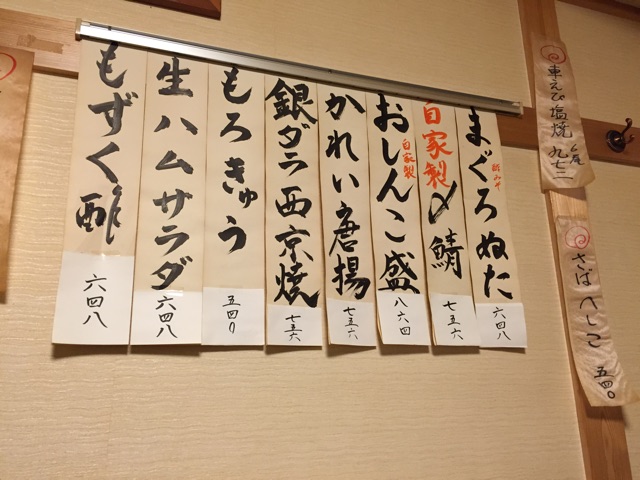 車えび塩焼 2尾 九七二
さばへしこ 五四〇
酢みそ
まぐろぬた 六四八
自家製〆鯖 七五六
自家製
おしんこ盛 八六四
かれい唐揚 七五六
銀ダラ西京焼 七五六
もろきゅう 五四〇
生ハムサラダ 六四八
もずく酢 六四八